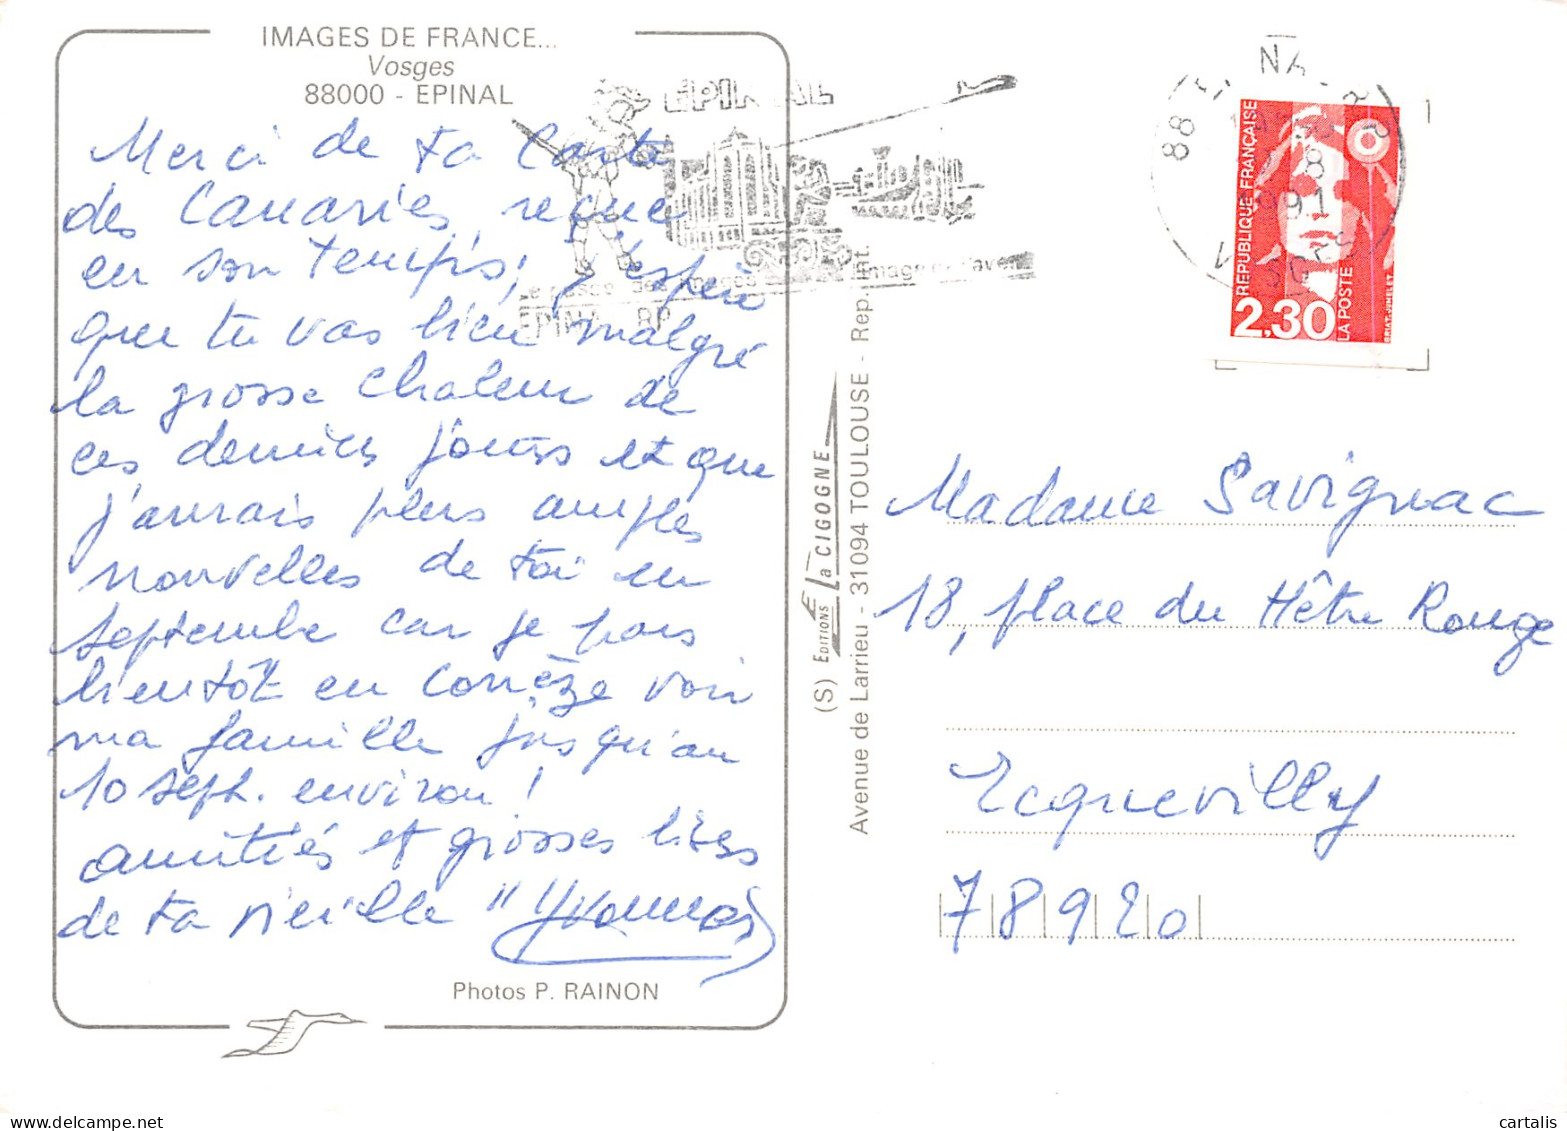 IMAGES DE FRANCE...
Vosges
88000 - EPINAL
Merci de ta Carte
des Canaries, reçue
en son temps; j'espère
que tu vas bien malgré
la grosse chaleur de
ces derniers jours et que
j'aurais plus amples
nouvelles de toi en
septembre car je pars
bientôt en Corrèze voir
ma famille jusqu'au
10 sept. environ!
amitiés et grosses bises
de ta vieille "Yvonne"
Photos P. RAINON
EPINAL
EPINAL RP
(S) EDITIONS La CIGOGNE
Avenue de Larrieu - 31094 TOULOUSE - Rep. Int.
88 EPINAL R.P.
1991
VOSGES
REPUBLIQUE FRANÇAISE
2,30
LA POSTE
BRIAT-JUMELET
Madame Savignac
18, place du Hêtre Rouge
Ecquevilly
78920
cartalis